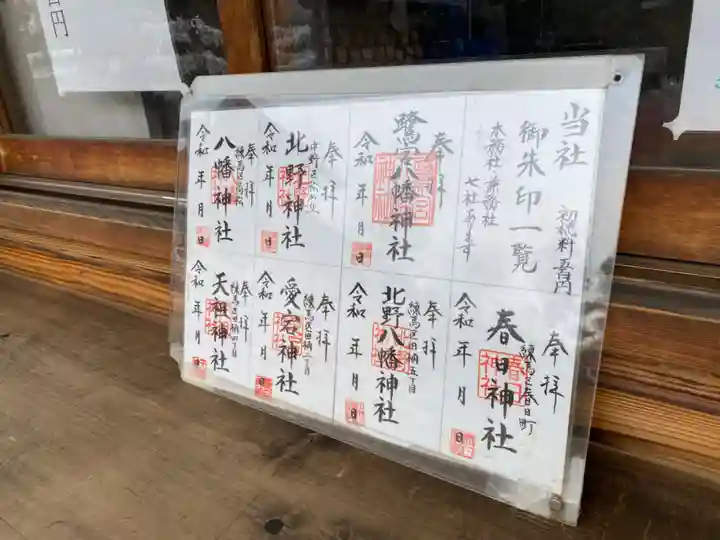 当社
御朱印一覧
初穂料 五百円
本務社・兼務社
七社あります
奉拝
鷺宮八幡神社
令和 年 月 日
奉拝
北野神社
令和 年 月 日
奉拝
八幡神社
令和 年 月 日
奉拝
練馬区春日町
春日神社
令和 年 月 日
奉拝
練馬区田柄五丁目
北野八幡神社
令和 年 月 日
奉拝
練馬区田柄一丁目
愛宕神社
令和 年 月 日
奉拝
練馬区田柄四丁目
天祖神社
令和 年 月 日
円